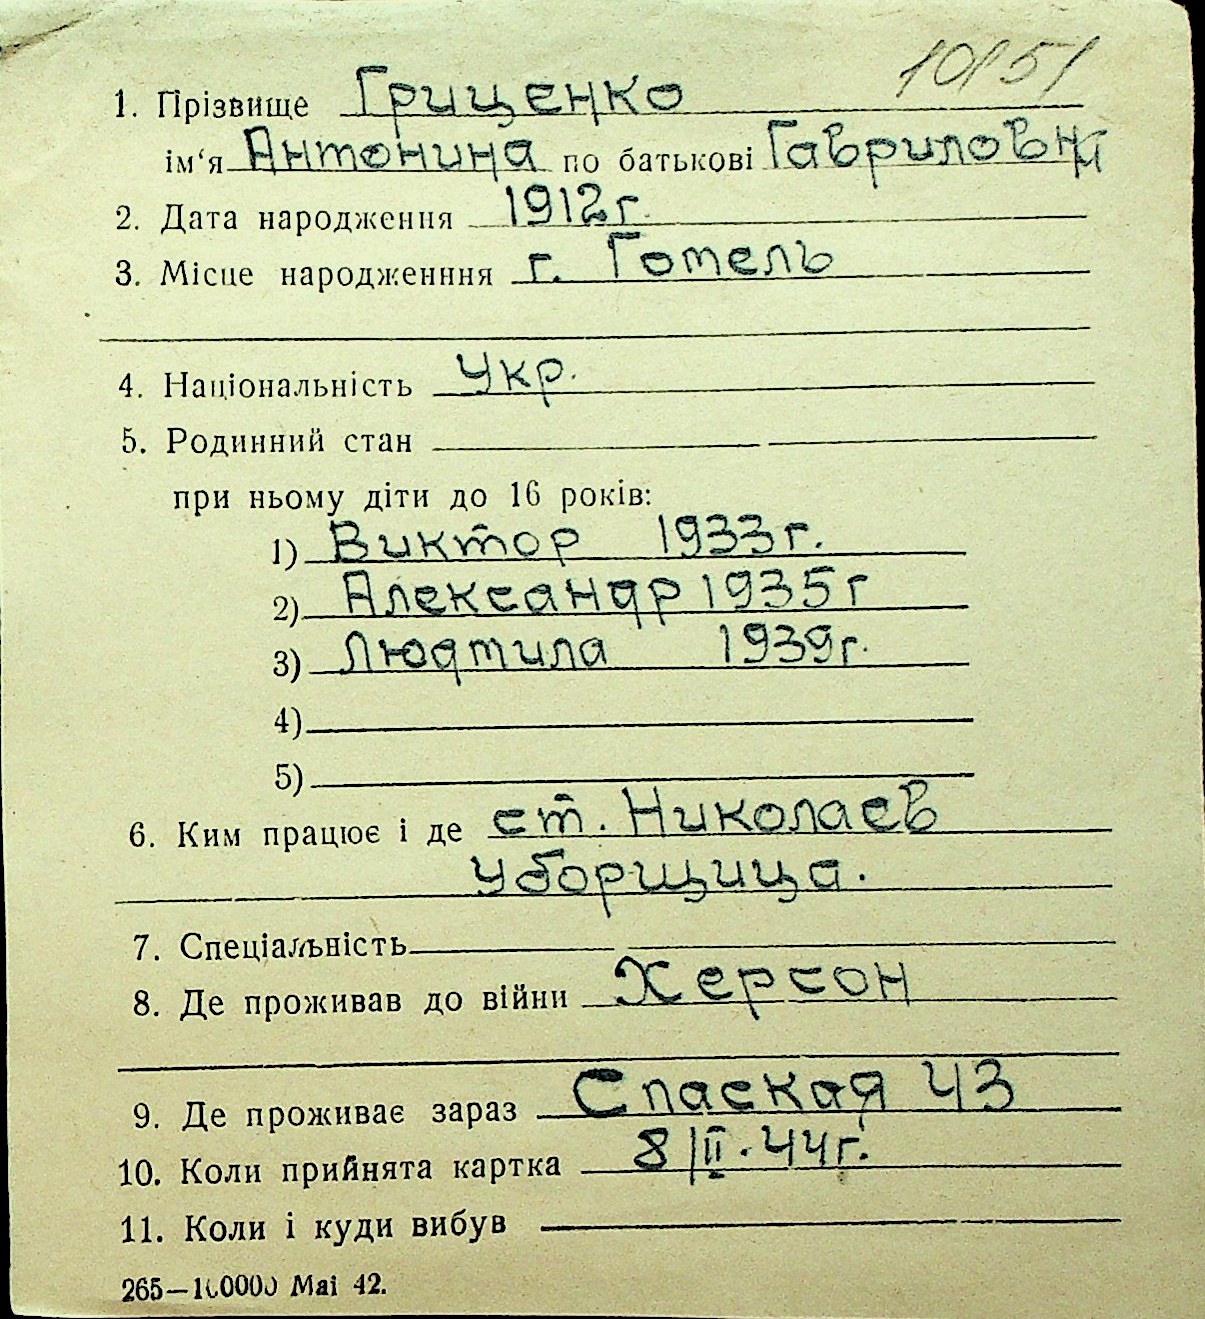 10151
1. Прізвище Гриценко
ім‘я Антонина по батькові Гавриловн
2. Дата народження 1912г.
3. Місце народженння г. Гомель
4. Національність Укр.
5. Родинний стан
при ньому діти до 16 років:
1) Виктор 1933г.
2) Александр 1935г
3) Людмила 1939г.
4)
5)
6. Ким працює і де ст. Николаев
Уборщица.
7. Спеціальність
8. Де проживав до війни Херсон
9. Де проживає зараз Спаская 43
10. Коли прийнята картка 8/II.44г.
11. Коли і куди вибув
265—100000 Mai 42.